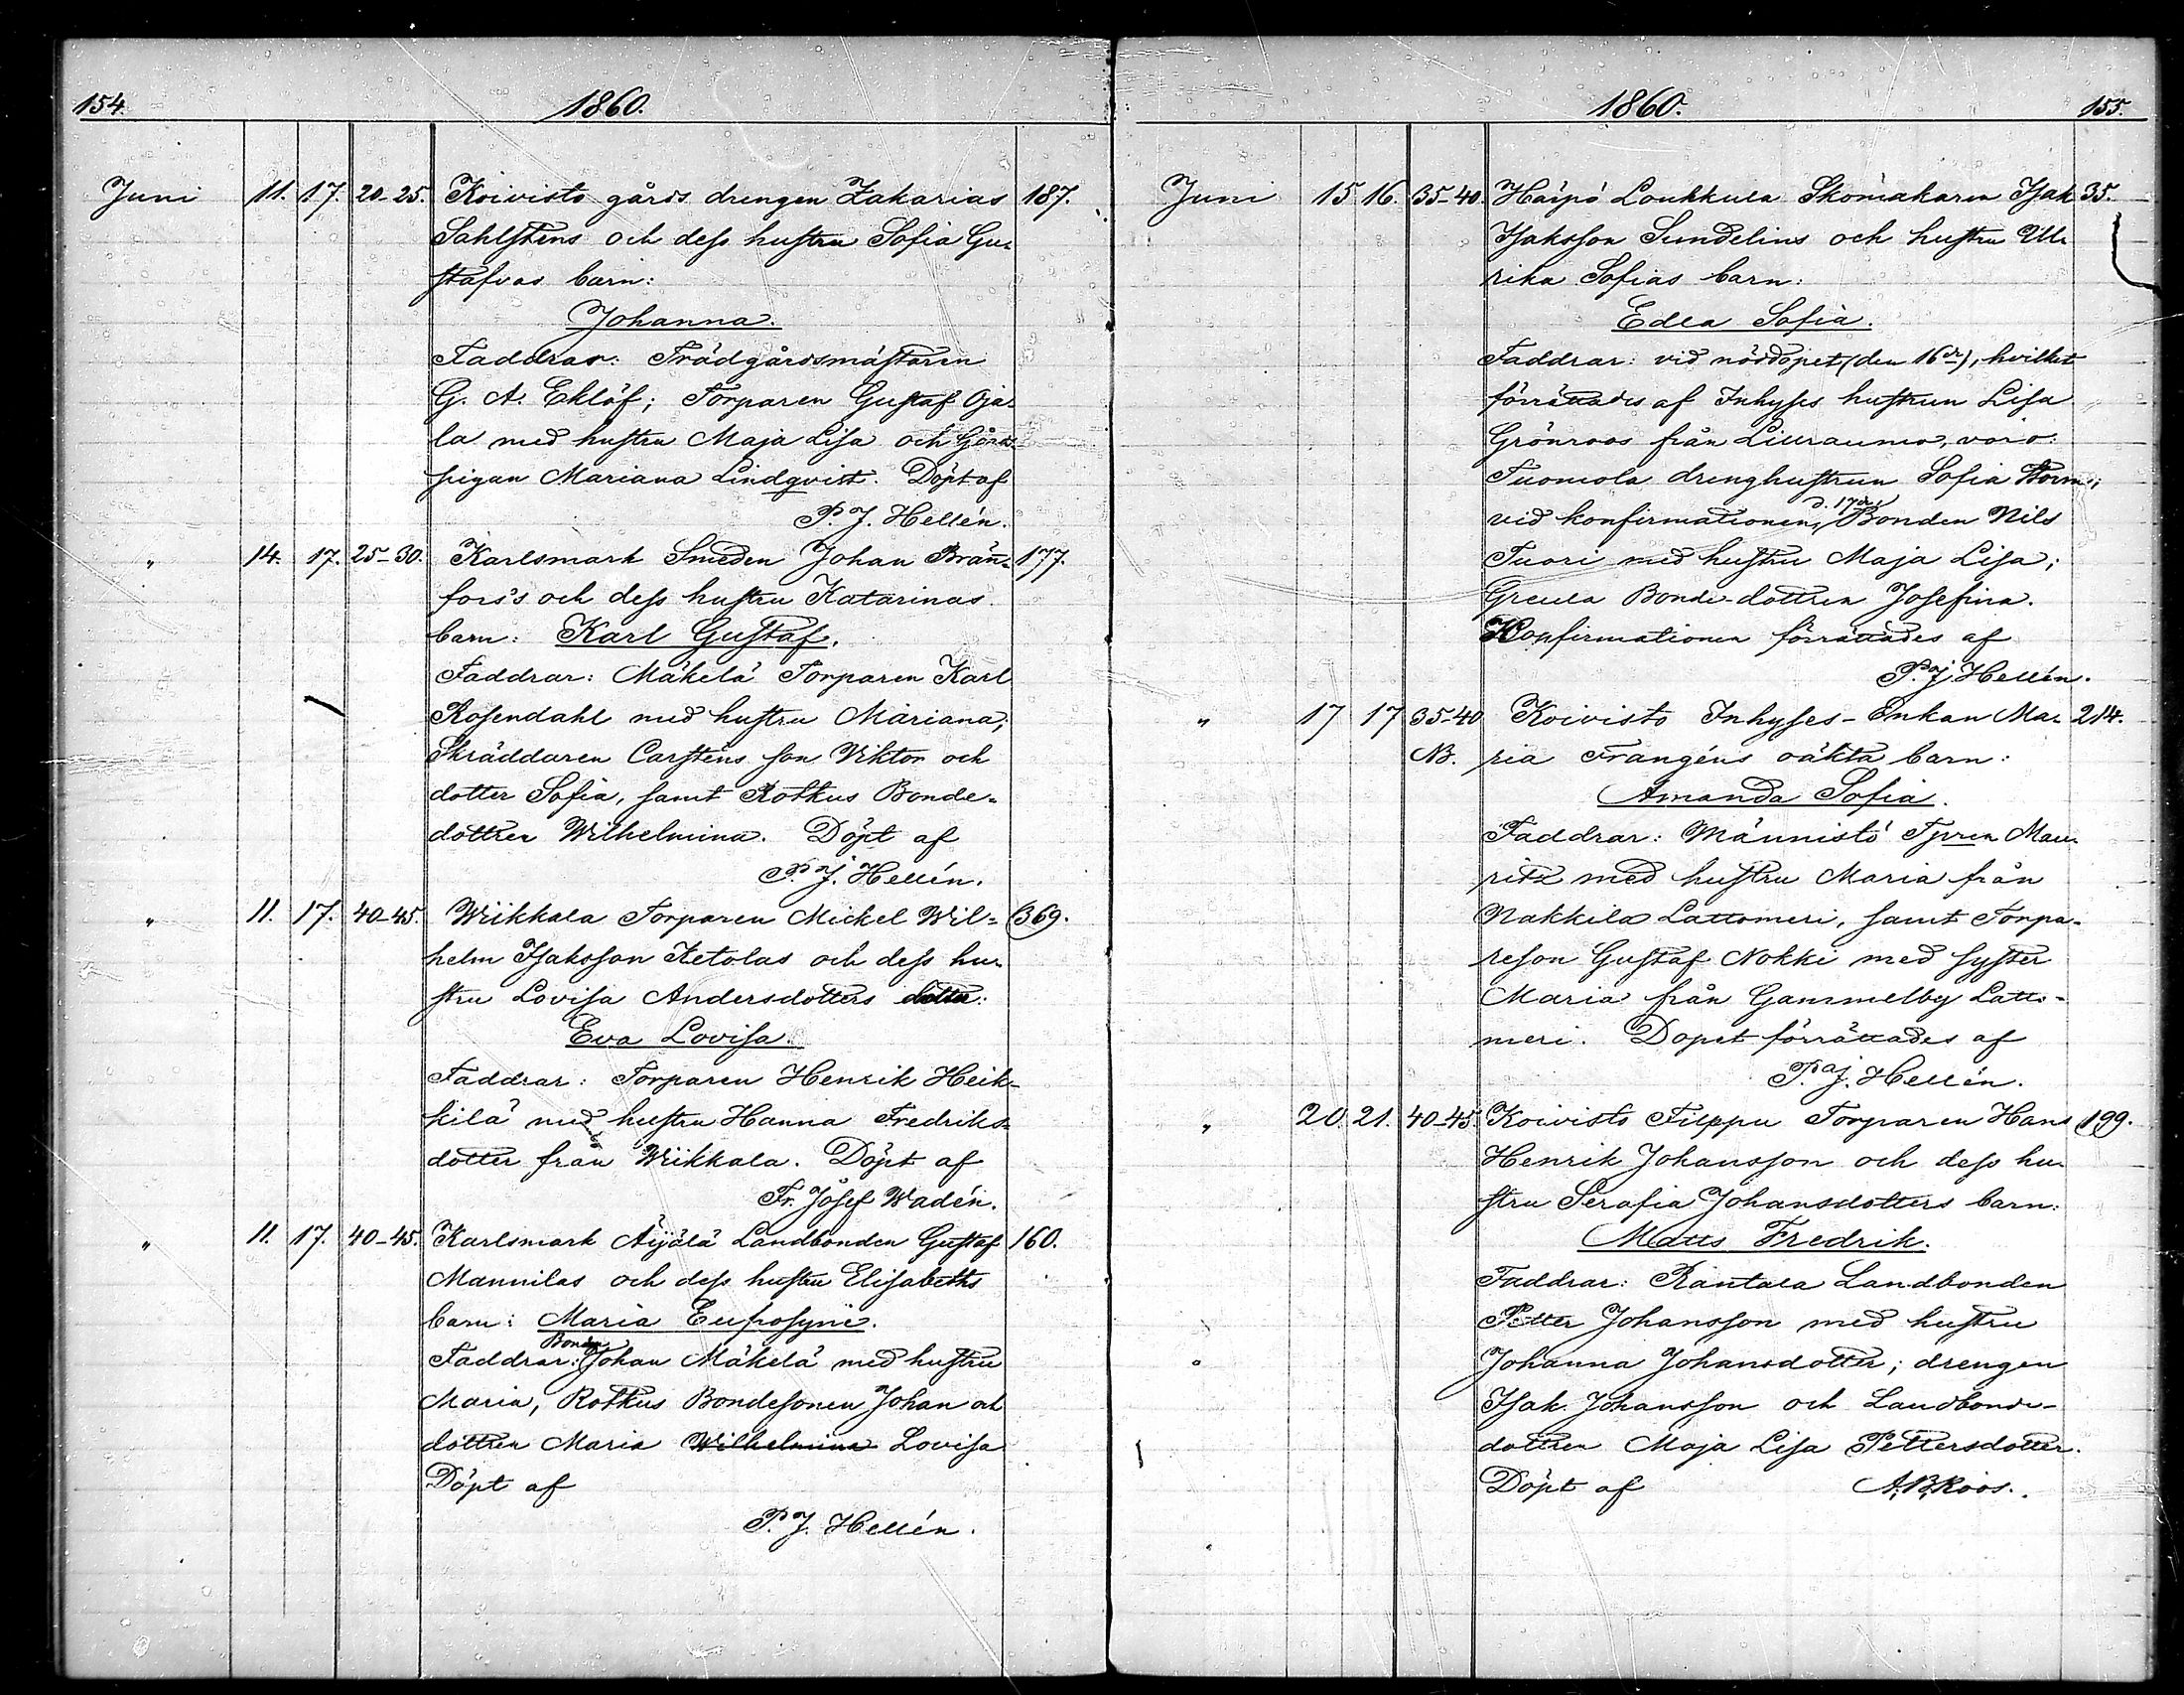 154.
1860.
Juni 11. 17. 20-25. Koivisto gårds drengen Zakarias 187.
Sahlstens och dess hustru Sofia Gu-
stafvas barn:
Johanna.
Faddrar: Trädgårdsmästaren
G. A. Eklöf; Torparen Gustaf Oja-
la med hustru Maja Lisa och Gårds-
pigan Mariana Lindqvist. Döpt af
P. J. Hellén.
" 14. 17. 25-30. Karlsmark Smeden Johan Brän- 177.
fors's och dess hustru Katarinas
barn: Karl Gustaf.
Faddrar: Mäkelä Torparen Karl
Rosendahl med hustru Mariana;
Skräddaren Carsténs son Viktor och
dotter Sofia, samt Rotkus Bonde-
dottren Wilhelmina. Döpt af
P. J. Hellén.
" 11. 17. 40-45. Wiikkala Torparen Mickel Wil- 369.
helm Isaksson Ketolas och dess hu-
stru Lovisa Andersdotters dotter:
Eva Lovisa.
Faddrar: Torparen Henrik Heik-
kilä med hustru Hanna Fredriks-
dotter från Wiikkala. Döpt af
Fr. Josef Wadén.
" 11. 17. 40-45. Karlsmark Äijälä Landbonden Gustaf 160.
Mannilas och dess hustru Elisabeths
barn: Maria Eufrosyne.
Bonden
Faddrar: Johan Mäkelä med hustru
Maria, Rotkus Bondesonen Johan och
dottren Maria Wilhelmina Lovisa
Döpt af
P. J. Hellén.
1860.
155.
Juni 15 16. 35-40. Haipö Loukkula Skomakaren Isak 35.
Isaksson Sundelins och hustru Ul-
rika Sofias barn:
Edla Sofia.
Faddrar: vid nöddopet (den 16de), hvilket
förrättades af Inhyses hustrun Lisa
Grönroos från Liuraumo, voro:
Tuomola drenghustrun Sofia
d. 17de
vid konfirmationen, Bonden Nils
Tuori med hustru Maja Lisa;
Greula Bonde-dottren Josefina.
Konfirmationen förrättades af
P. J. Hellén.
" 17 17 35-40 Koivisto Inhyses-Enkan Ma- 214.
NB. ria Frangéns oäkta barn:
Amanda Sofia.
Faddrar: Männistö Tpren Mau-
ritz med hustru Maria från
Nakkila Lattomeri, samt Torpa-
reson Gustaf Nokki med syster
Maria från Gammelby Latto-
meri. Dopet förrättades af
P. J. Hellén.
" 20. 21. 40-45. Koivisto Filppu Torparen Hans 199.
Henrik Johansson och dess hu-
stru Serafia Johansdotters barn:
Matts Fredrik.
Faddrar: Rantala Landbonden
Petter Johansson med hustru
Johanna Johansdotter; drengen
Isak Johansson och Landbonde-
dottren Maja Lisa Pettersdotter.
Döpt af A. B. Roos.